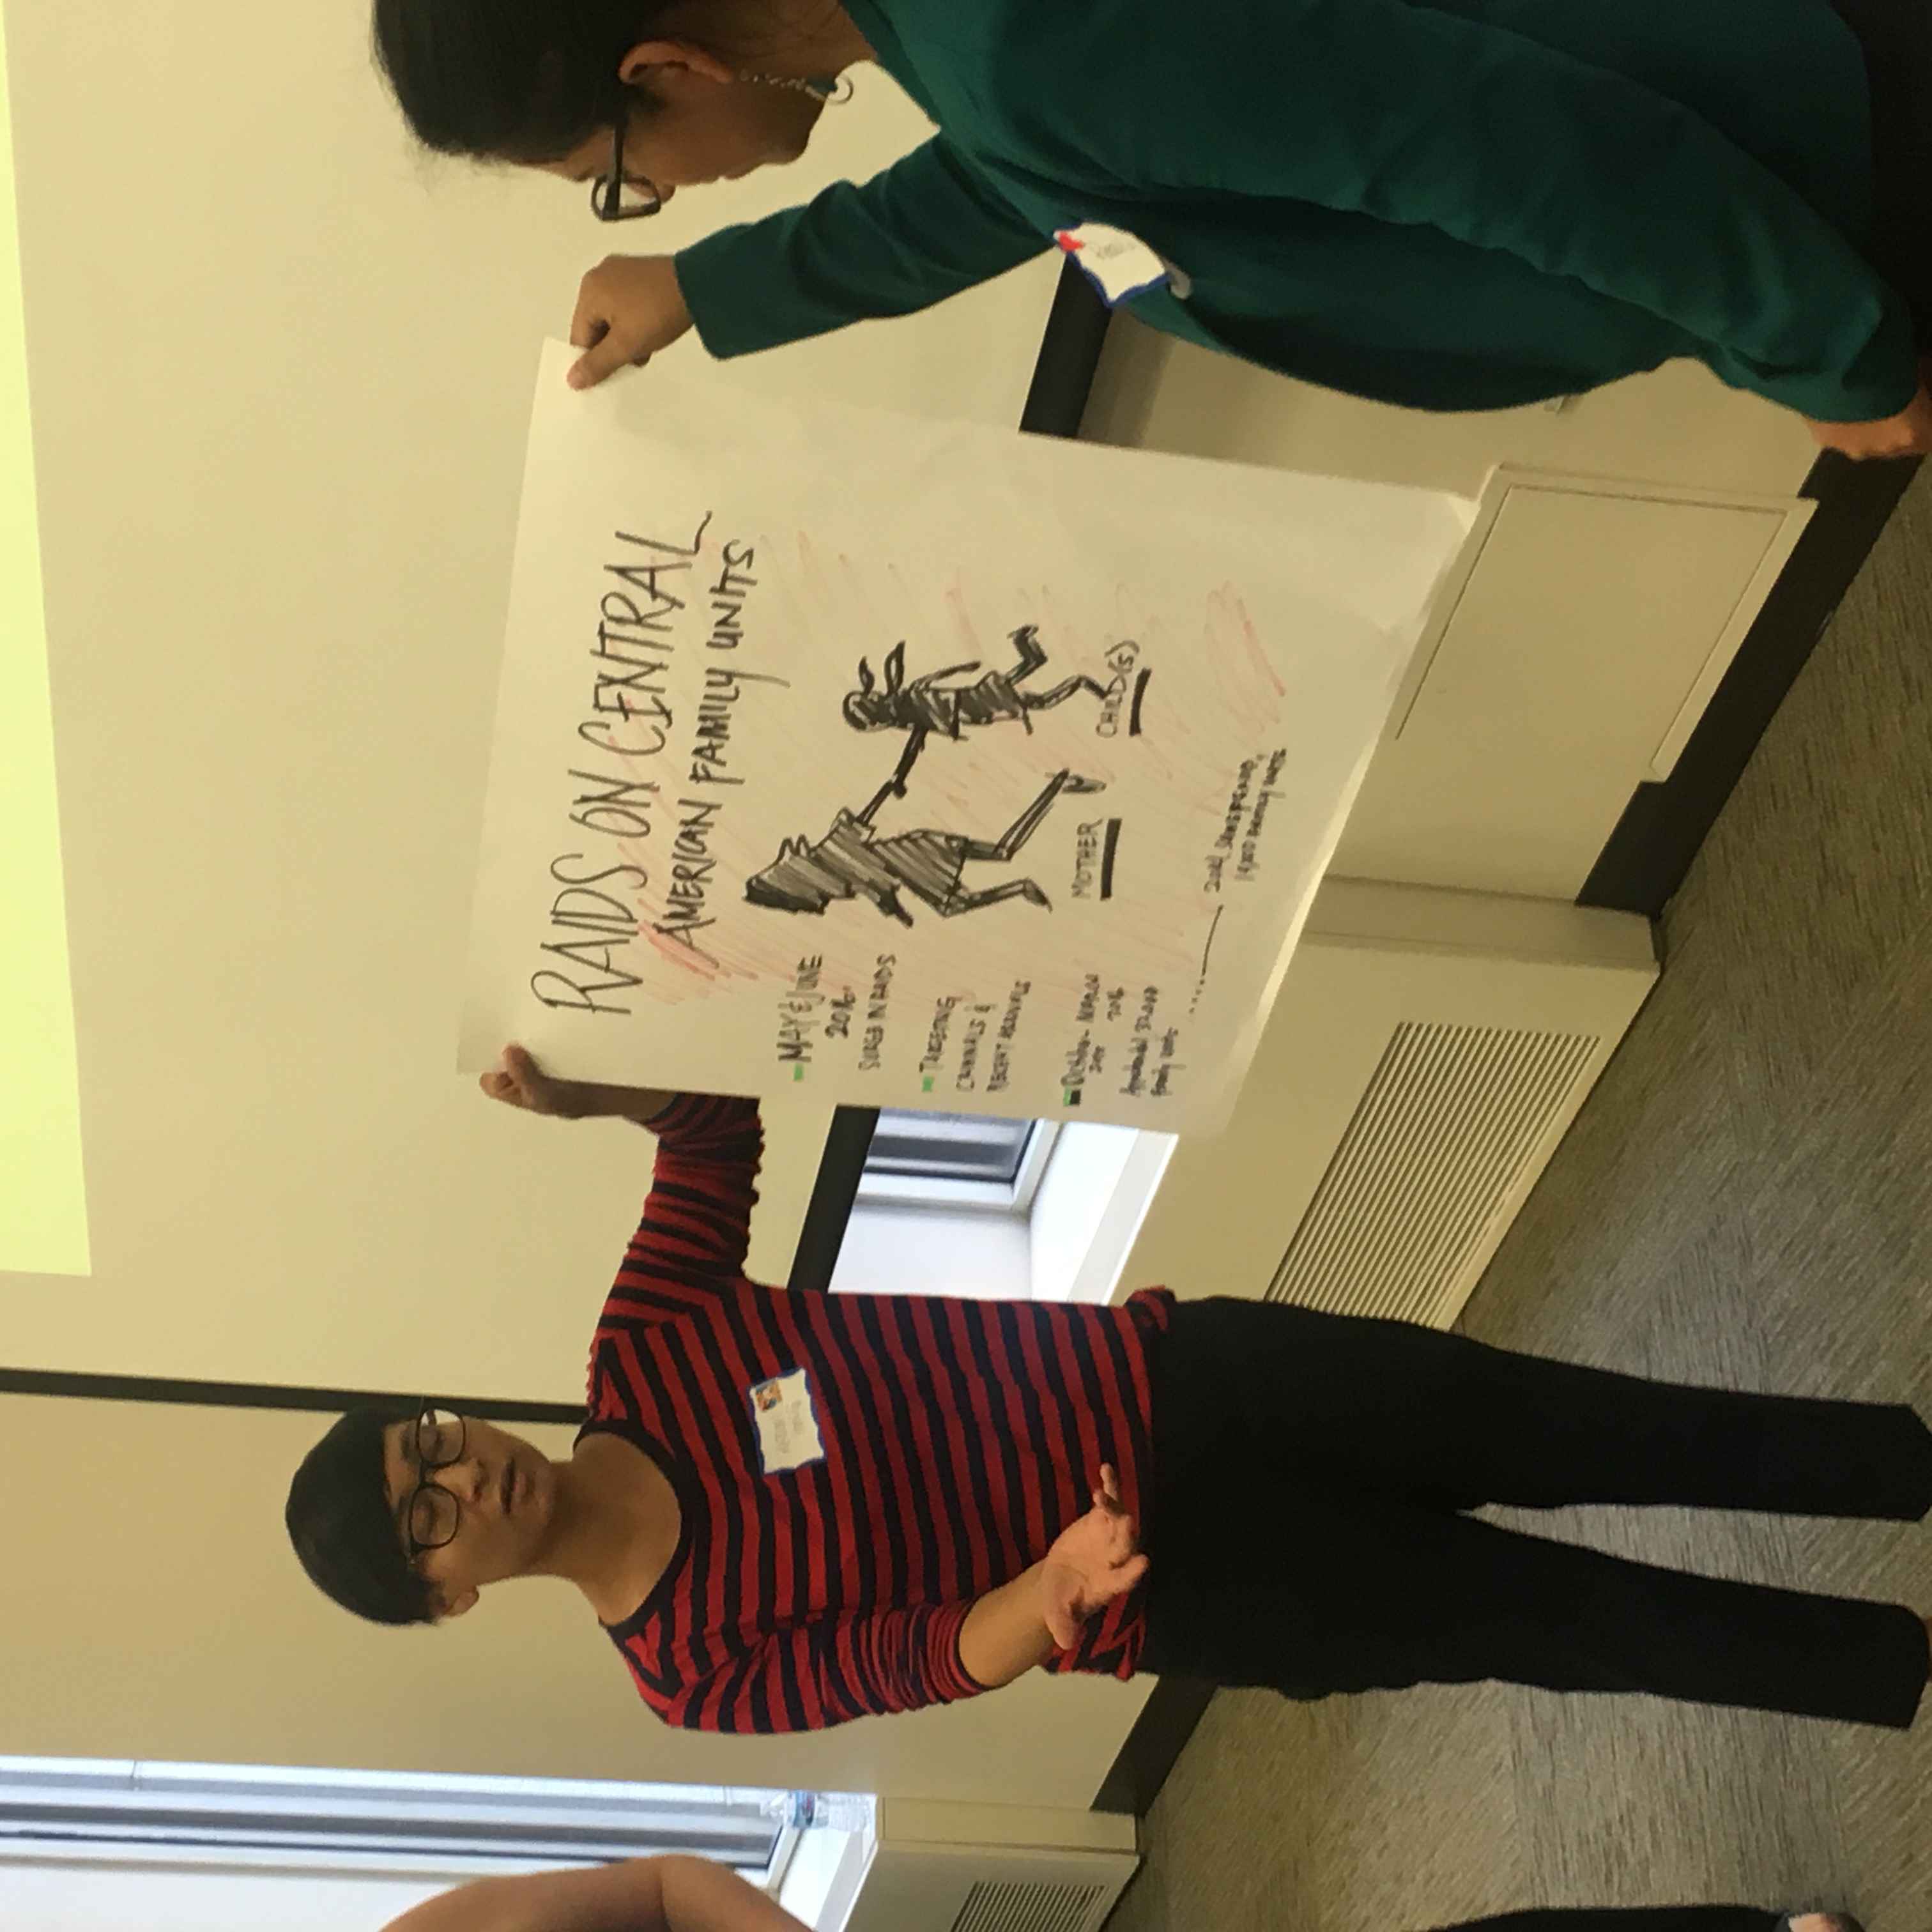 RAIDS ON CENTRAL
AMERICAN FAMILY UNITS
MAY & JUNE
2016
SURGE IN RAIDS
TARGETING
CRIMINALS &
RECENT ARRIVALS
October - MARCH
2016
Apprehended 32,000
Family units
MOTHER
CHILD(S)
FAMILY UNITS